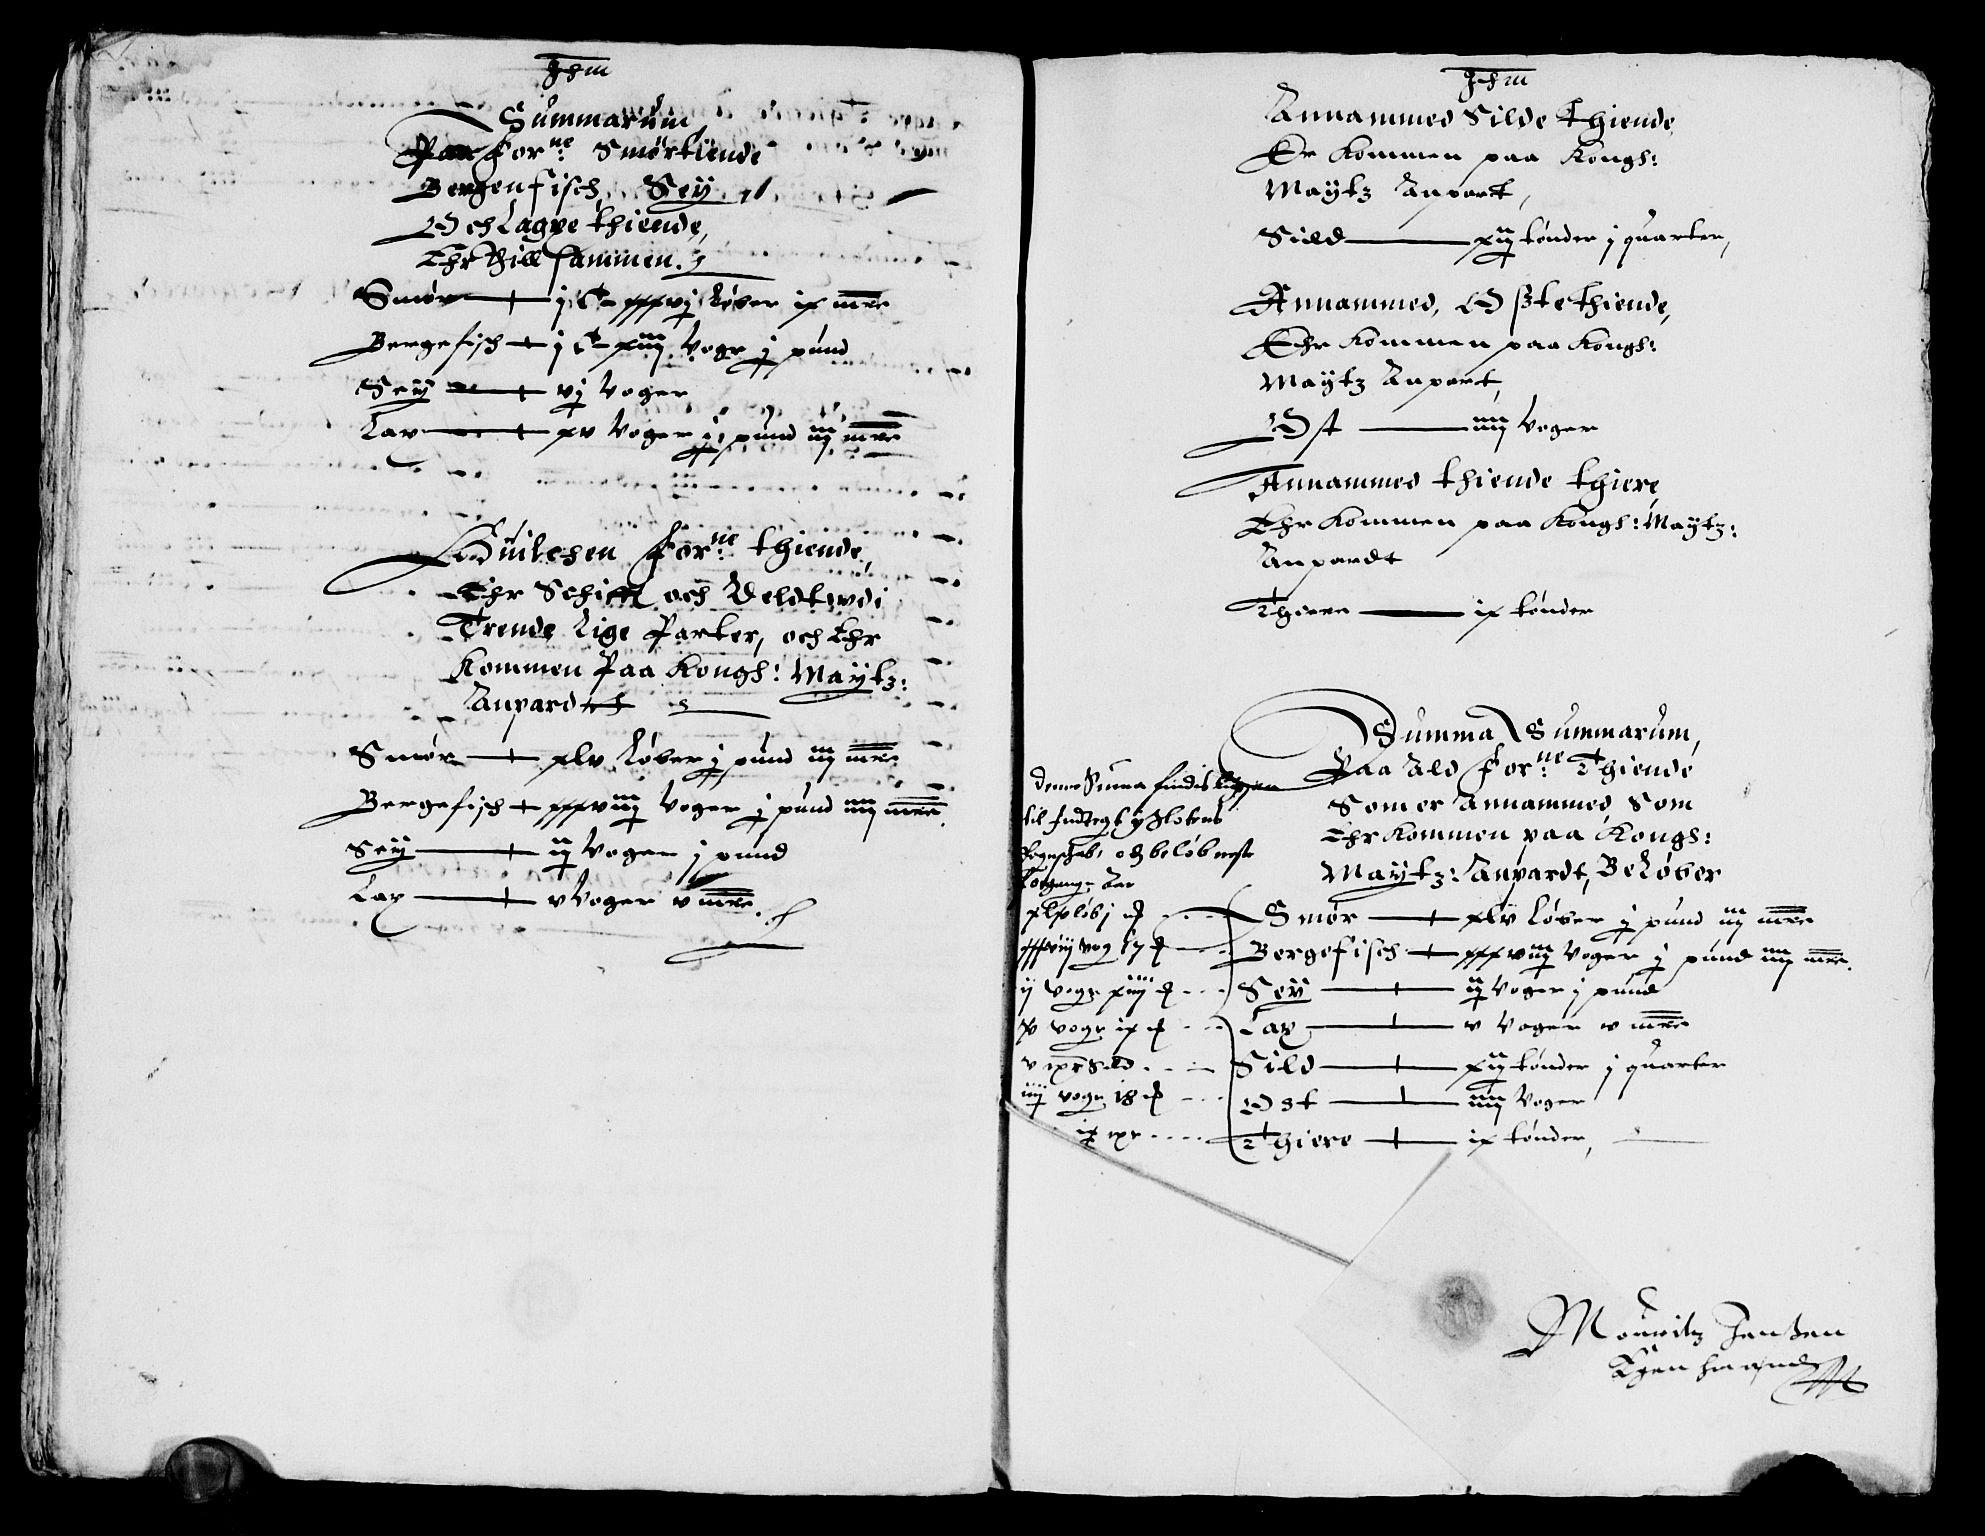 Jhm
Summarum
Paa forne: Smørtiende
Bergenfisch, Seÿ
Och Lagxe thiende,
Ehr Thill sammen.
Smør j C xxxvj Løber ix mrc
Bergefisch j C xiiij Voge j pund
Seÿ vj Voger
Lax xv Voger ij pund iij mrc
Huilchen forne: thiende,
Ehr Schifft och Deldt wdi
Trende Lige Parter, och Ehr
Kommen Paa Kongh: Maÿtz:
Anpardt
Smør xlv Løber j pund iij mrc
Bergefisch xxxviij Voger j pund iiij mrc
Seÿ ij Voger j pund
Lax v Voger v mrc.
Jhm
Annammed Silde Thiende,
Er Kommen paa Kongh:
Maÿtz Anpart,
Sild xij tønder j quarter,
Annammed, Oste thiende,
Ehr Kommen paa Kongh:
Maÿtz Anpart,
Ost iiij Voger
Annammed thiende thiere,
Ehr Kommen paa Kongh: Maÿtz:
Anpardt
Thiere ix tønder
Summa Summarum,
Paa Ald forne: Thiende
Som er Annammed Som
Ehr Kommen paa Kongh:
Maÿtz: Anpardt, Beløber
Denne Suma findis
til Indtegt ÿ Slotens
Regnschab, och beløb neste
Smør xlv Løber j pund iij mrc
Bergefisch xxxviij Voger j pund iiij mrc.
Seÿ ij Voger j pund
Lax v Voger v mrc
Sild xij tønder j quarter
Ost iiij Voger
Thiere ix tønder,
Mouritz Jenßen
Egen haand